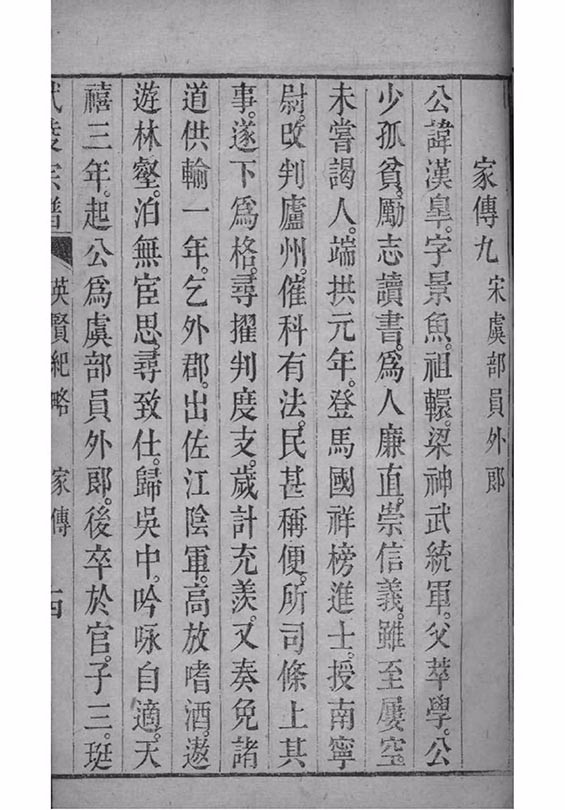 家傳九 宋虞部員外郎
公諱漢臯。字景魚。祖轘。梁神武統軍。父萃學。公
少孤貧。勵志讀書。爲人廉直。崇信義。雖至屢空。
未嘗謁人。端拱元年。登馬國祥榜進士。授南寧
尉。改判廬州。催科有法。民甚稱便。所司條上其
事。遂下爲格。尋擢判度支。歲計充羨。又奏免諸
道供輸一年。乞外郡。出佐江陰軍。高放嗜酒。遨
遊林壑。泊無宦思。尋致仕。歸吳中。吟咏自適。天
禧三年。起公爲虞部員外郎。後卒於官。子三。珽
武陵宗譜 英賢紀略 家傳